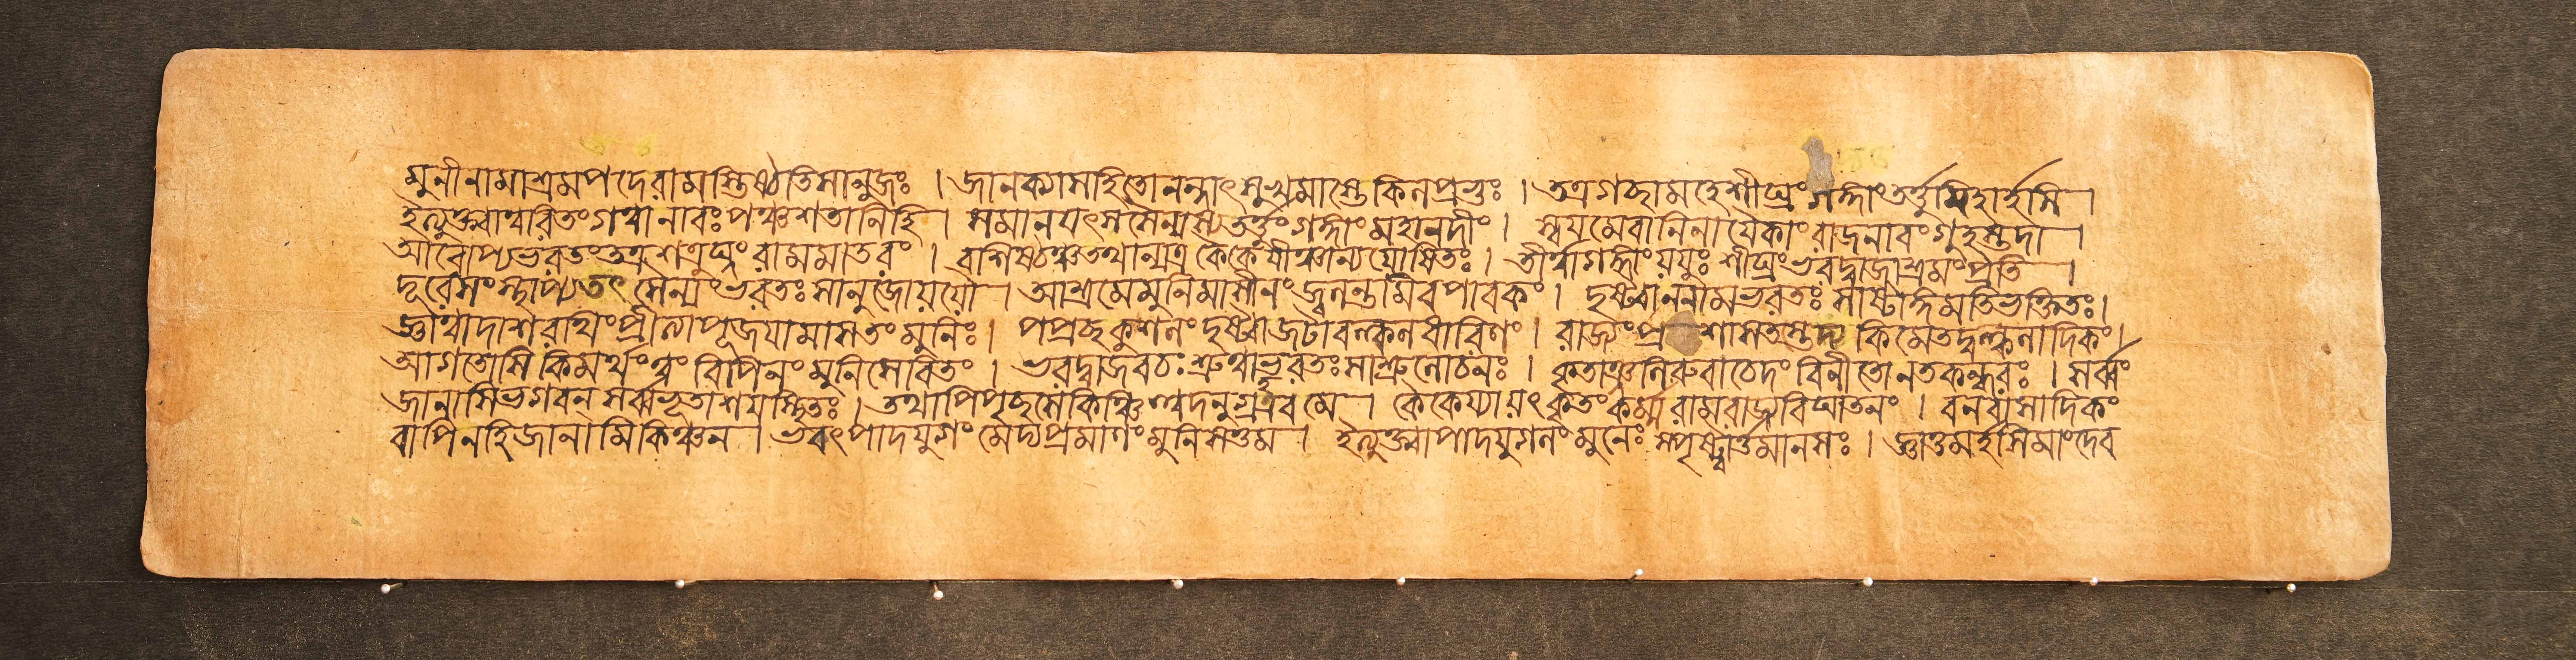 মুনীনামাশ্রমপদেরামস্তিষ্ঠতিসানুজঃ । জানক্যাসহিতোনন্দাৎসুখমাস্তেকিলপ্রভুঃ । তত্রগচ্ছামহেশীঘ্রং গঙ্গাংতর্ত্তুমিহার্হসি ।
ইত্যুক্ত্বাত্বরিতংগত্বা নাবঃপঞ্চশতানিহি । সমানয়ৎসসৈন্যস্য তর্ত্তুংগঙ্গাংমহানদীং । স্বয়মেবানিনায়ৈকাংরাজনাবংগুহস্তদা ।
আরোপ্যভরতংতত্রশত্রুঘ্নং রামমাতরং । বাশিষ্ঠঞ্চতথান্যত্র কৈকেয়ীঞ্চান্যযোষিতঃ । তীর্ত্বাগঙ্গাংযযুঃ শীঘ্রংভরদ্বাজাশ্রমংপ্রতি ।
দূরেসংস্থাপ্যতৎ সৈন্যংভরতঃসানুজোযযৌ । আশ্রমেমুনিমাসীনংজ্বলন্তমিবপাবকং । দৃষ্ট্বাননামভরতঃ সাষ্টাঙ্গমতিভক্তিতঃ।
জ্ঞাত্বাদাশরথিংপ্রীত্যাপূজয়ামাসতংমুনিঃ । পপ্রচ্ছকুশলংদৃষ্ট্বাজটাবল্কলধারিণং । রাজ্যংপ্র শাসতস্তেদ্য কিমেতদ্বল্কলাদিকং।
আগতোসি কিমর্থংত্বং বিপিনংমুনিসেবিতং । ভরদ্বাজবচঃশ্রুত্বাভরতঃসাশ্রুলোচনঃ । কৃতাঞ্জলিরুবাচেদং বিনীতোনতকন্ধরঃ । সর্ব্বং
জানাসিভগবন্ সর্ব্বভূতাশয়স্থিতঃ । তথাপিপৃচ্ছসেকিঞ্চিত্তদনুগ্রহএবমে । কৈকেয্যায়ৎকৃতংকর্ম্ম রামরাজ্যবিঘাতনং । বনবাসাদিকং
বাপিনহিজানামিকিঞ্চন । ভবৎপাদযুগং মেদ্যপ্রমাণংমুনিসত্তম । ইত্যুক্ত্বাপাদযুগলংমুনেঃ স্পৃষ্ট্বার্তমানসঃ । জ্ঞাতুমর্হসিমাংদেব